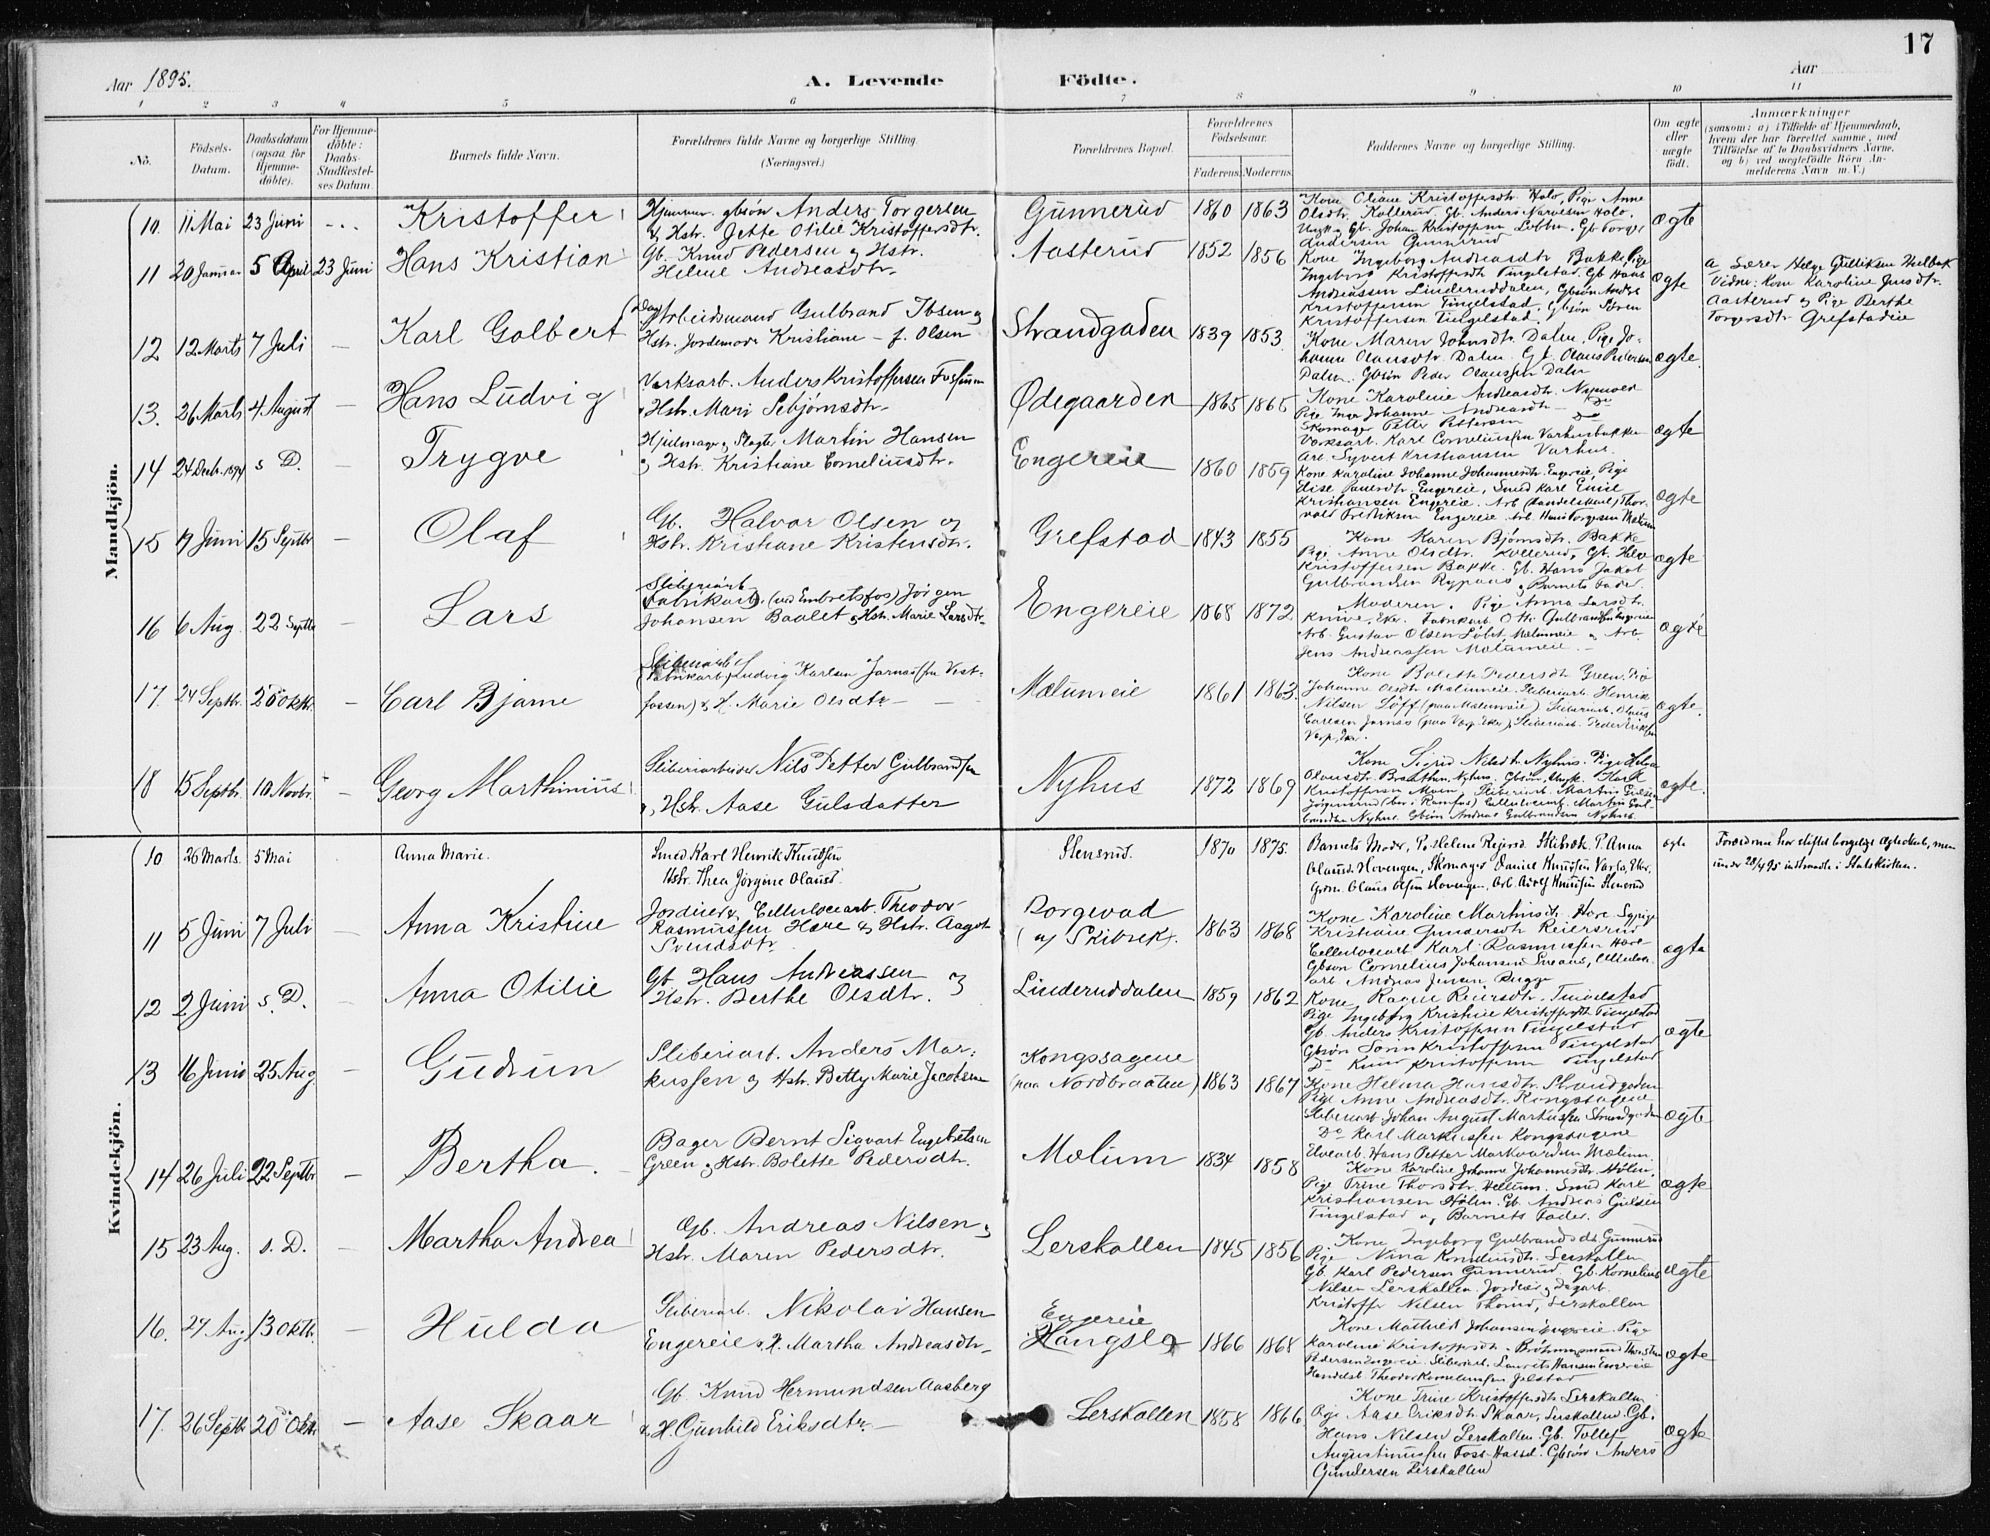 17
Aar 1895.
A. Levende Födte.
Aar
1 2 3 4 5 6 7 8 9 10 11
No.
Födsels-Datum.
Daabsdatum (ogsaa for Hjemme-döbte).
For Hjemme-döbte: Daabs-Stadfæstel-ses Datum.
Barnets fulde Navn.
Forældrenes fulde Navne og borgerlige Stilling. (Næringsvei.)
Forældrenes Bopæl.
Forældrenes Födselsaar.
Faderens. Moderens.
Faddernes Navne og borgerlige Stilling.
Om ægte eller uægte födt.
Anmærkninger
(saasom: a) i Tilfælde af Hjemmedaab, hvem der har forrettet samme, med Tilföielse af to Daabsvidners Navne, og b) ved uægtefödte Börn An-melderens Navn m. V.)
Mandkjön.
10. 11 Mai 23 Juni Kristoffer
gbsön Anders Torgersen
& Hstr. Jette Otilie Kristoffersdtr.
Gunnerud 1860 1863
Kone Oliane Kristoffersdtr. Holo, Pige Anne
Olsdtr. Kollerud. Gb. Anders Narvesen Holo.
Andersen Gunnerud
ægte
11 20 Januar 5 April 23 Juni Hans Kristian
Gb. Knud Pedersen og Hstr.
Helene Andreasdtr.
Aasterud 1852 1856
Kone Ingeborg Andreasdtr. Bakke, Pige
Ingeborg Kristoffersdtr. Tingelstad. Gb. Hans
Andreassen Linderuddalen, Gbsön Andr.
Kristoffersen Tingelstad, Gbsön Sören
Kristoffersen Tingelstad
ægte
a Lærer Helge Gulliksen Hulbak
Vidne: Kone Karoline Jensdtr.
Aasterud og Pige Berthe
Torgersdtr Grefstadeie
12 12 Marts 7 Juli — Karl Golbert
(Dag) Arbeidsmand Gulbrand Ibsen og
Hstr. Jordemoder Kristiane — f. Olsen
Strandgaden 1839 1853
Kone Maren Johnsdtr. Dalen, Pige Jo-
hanne Olausdtr. Dalen. Gb. Olaus Pedersen
Dalen. Gbsön Peder Olaussen Dalen
ægte.
13. 26 Marts 4 August — Hans Ludvig
Værksarb. Anders Kristoffersen Fossum
& Hstr. Mari Sebjørnsdtr.
Ødegaarden 1865 1865
Kone Karoline Andreasdtr.
Pige Inger Johanne Andreasdtr — Do
Skomager Petter Pettersen Do
Værksarb. Karl Corneliussen Varhusbakken
Arb. Syvert Kristiansen Varhus.
ægte
14 24 Decb. 1894 s. D. — Trygve
Hjulmager og Slagter Martin Hansen
og Hstr. Kristiane Corneliusdtr.
Engereie 1860 1859
Kone Karoline Johanne Johannesdtr. Engereie, Pige
Elise Paulsdtr. Engereie, Smed Karl Emil
Kristiansen Engereie. Arb. (Handelskarl) Thor-
vald Fredriksen Engereie. Arb. Hans Torgersen Mælum
ægte
15 4 Juni 15 Septbr. — Olaf
Gb. Halvor Olsen og
Hstr. Kristiane Kristensdtr.
Grefstad 1843 1855
Kone Karen Bjørnsdtr. Bakke
Pige Anne Olsdtr. Kollerud, Gb. Helge
Kristoffersen Bakke. Gb. Hans Jakob
Gulbrandsen Rypaas og Barnets Fader.
ægte
16 6 Aug. 22 Septb. Lars
Sliberiarb
Fabrikarb. (ved Embretsfos) Jørgen
Johansen Baalet & Hstr. Marie Larsdtr.
Engereie 1868 1872
Moderen. Pige Anna Larsdtr.
Knive, Eker. Fabrikarb. Otto Gulbrandsen Engereie
Arb. Gustav Olsen Löbet Mælumeie & Arb.
Jens Andreassen Mælumeie. —
ægte
17. 24 Septbr. 20 Oktbr. — Carl Bjarne
Sliberiarb
(Fabrikarb.) Ludvig Karlsen Jarnæs (fra Vest-
fossen) & H. Marie Olsdtr —
Mælumeie 1861 1863.
Kone Bolette Pedersdtr Green. Pige
Johanne Olsdtr Mælumeie. Sliberiarb. Henrik
Nilsen Løff (paa Mælumeie) Sliberiarb. Olaus
ægte.
18 15 Septbr. 10 Novbr. — Georg Marthinius
Sliberiarbeider Nils Petter Gulbrandsen
& Hstr. Aase Gulsdatter
Nyhus 1872 1869
Kone Sigrid Nilsdtr Nyhus. Pige Helene
Kristoffersen Moen, Sliberiarb. Martin Gulsen
ægte.
Kvindekjön.
10 26 Marts. 5 Mai Anna Marie.
Smed Karl Henrik Knudsen
Hstr. Thea Jørgine Olausd.
Stensrud. 1870 1875.
Barnets Moder, P. Helene Reiersd. Skibræk. P. Anna
Olausd. Hovengen, Skomager Daniel Knudsen Varlo, Eker.
Grdm. Olaus Olsen Hovengen, Arb. Adolf Knudsen Stensrud
ægte
Forældrene har stiftet borgerligt Ægteskab, men
under 28/4 95 indtraadte i Statskirken.
11 5 Juni 7 Juli — Anna Kristine
Jordeier & Cellulosearb. Theodor
Rasmussen Høre & Hstr. Aagot
Svendsdtr.
Borgevad
(af Skibræk). 1863 1868
Kone Karoline Martinsdtr. Høre. Sypige
Kristiane Gundersdtr Reiersrud
Cellulosearb. Karl Rasmussen Høre
Gbsøn Cornelius Johansen Sneaas, Cellulose-
arb. Andreas Jensen Rugge
ægte
12 2 Juni s. D. — Anna Otilie
Gb. Hans Andreassen og
Hstr. Berthe Olsdtr.
Linderuddalen 1859 1862
Kone Ragne Reiersdtr. Tingelstad
Pige Ingeborg Kristine Kristoffersdtr Tingelstad
Gb. Anders Kristoffersen Tingelstad
Gbsön Sören Kristoffersen Tingelstad
Do Knud Kristoffersen Tingelstad
ægte
13 16 Juni 25 Aug — Gudrun
Sliberiarb. Anders Mar-
kussen og Hstr. Betty Marie Jacobsen
Kongssagene
(paa Nordbraaten) 1863 1867
Kone Helena Hansdtr. Strandgaden
Pige Anne Andreasdtr. Kongssagene
Sliberiarb. Johan August Markussen Strandgaden
Do Karl Markussen Kongssagene
Elvearb. Hans Petter Markvardsen Mælum.
ægte
14 26 Juli 22 Septbr. Bertha. —
Bager Bernt Sigvart Engebretsen
Green & Hstr. Bolette Pedersdtr.
Mælum 1834 1858
Kone Karoline Johanne Johannesdtr. Hølen,
Pige Trine Thorsdtr. Hellum. Smed Karl
Kristiansen Hølen. Gb. Andreas Gulsen
Tingelstad og Barnets Fader.
ægte
15 23 Aug. s. D. — Martha Andrea
Gb. Andreas Nilsen &
Hstr. Maren Pedersdtr.
Lerskallen 1845 1856
Kone Ingeborg Gulbrandsdtr Gunnerud
Pige Nina Korneliusdtr. Lerskallen
Gb. Karl Pedersen Gunnerud, Gb. Kornelius
Nilsen Lerskallen. Jordeier & Dagarb.
Kristoffer Nilsen Thorud, Lerskallen
ægte
16. 27 Aug 13 Oktb. — Hulda
Sliberiarb. Nikolai Hansen
Engereie & H. Martha Andreasdtr.
Engereie
Hangslo 1866 1868
Kone Mathild Johansen Engereie. Pige
Karoline Kristoffersdtr.
Pedersen Engereie. Sliberiarb. Laurits Hansen Engereie
ægte
17. 26 Septbr 20 Oktbr. — Aase Skaar
Gb. Knud Hermundsen Aasberg
& H. Gunhild Eriksdtr. —
Lerskallen 1858 1866
Kone Trine Kristoffersdtr Lerskallen
Pige Aase Eriksdtr. Skaar, Lerskallen Gb.
Hans Nilsen Lerskallen. Gb. Tollef
Augustinussen Foss-Hassel. Gbsön Anders
Gundersen Lerskallen
ægte